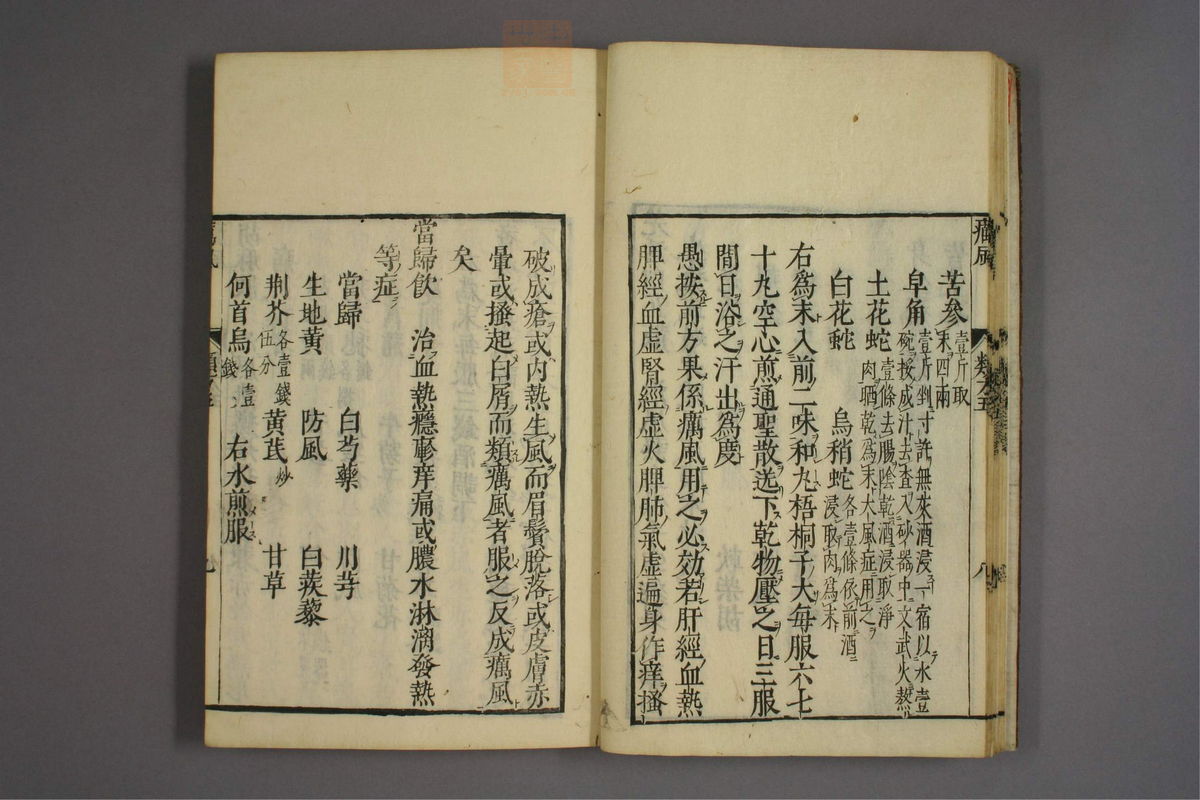 癘風 類卷五 八
苦參 壹斤取末四兩
皁角 壹斤剉寸許無灰酒浸一宿以水壹碗挼成汁去査入砂器中文武火熬
土花蛇 壹條去腸陰乾酒浸取淨肉晒乾爲末大風症用之
白花蛇 烏稍蛇 各壹條依前酒浸取肉爲末
右爲末入前二味和丸梧桐子大每服六七
十丸空心煎通聖散送下乾物壓之日三服
間日浴之汗出爲度
愚按前方果係癘風用之必効若肝經血熱
脾經血虛腎經虛火脾肺氣虛遍身作痒搔
破成瘡或内熱生風而眉鬢脫落或皮膚赤
暈或搔起白屑而類癘風者服之反成癘風
矣
當歸飲 治血熱癮疹痒痛或膿水淋漓發熱
等症
當歸 白芍藥 川芎
生地黃 防風 白蒺藜
荆芥 各壹錢伍分 黃芪 炒 甘草
何首烏 各壹錢 右水煎服
九